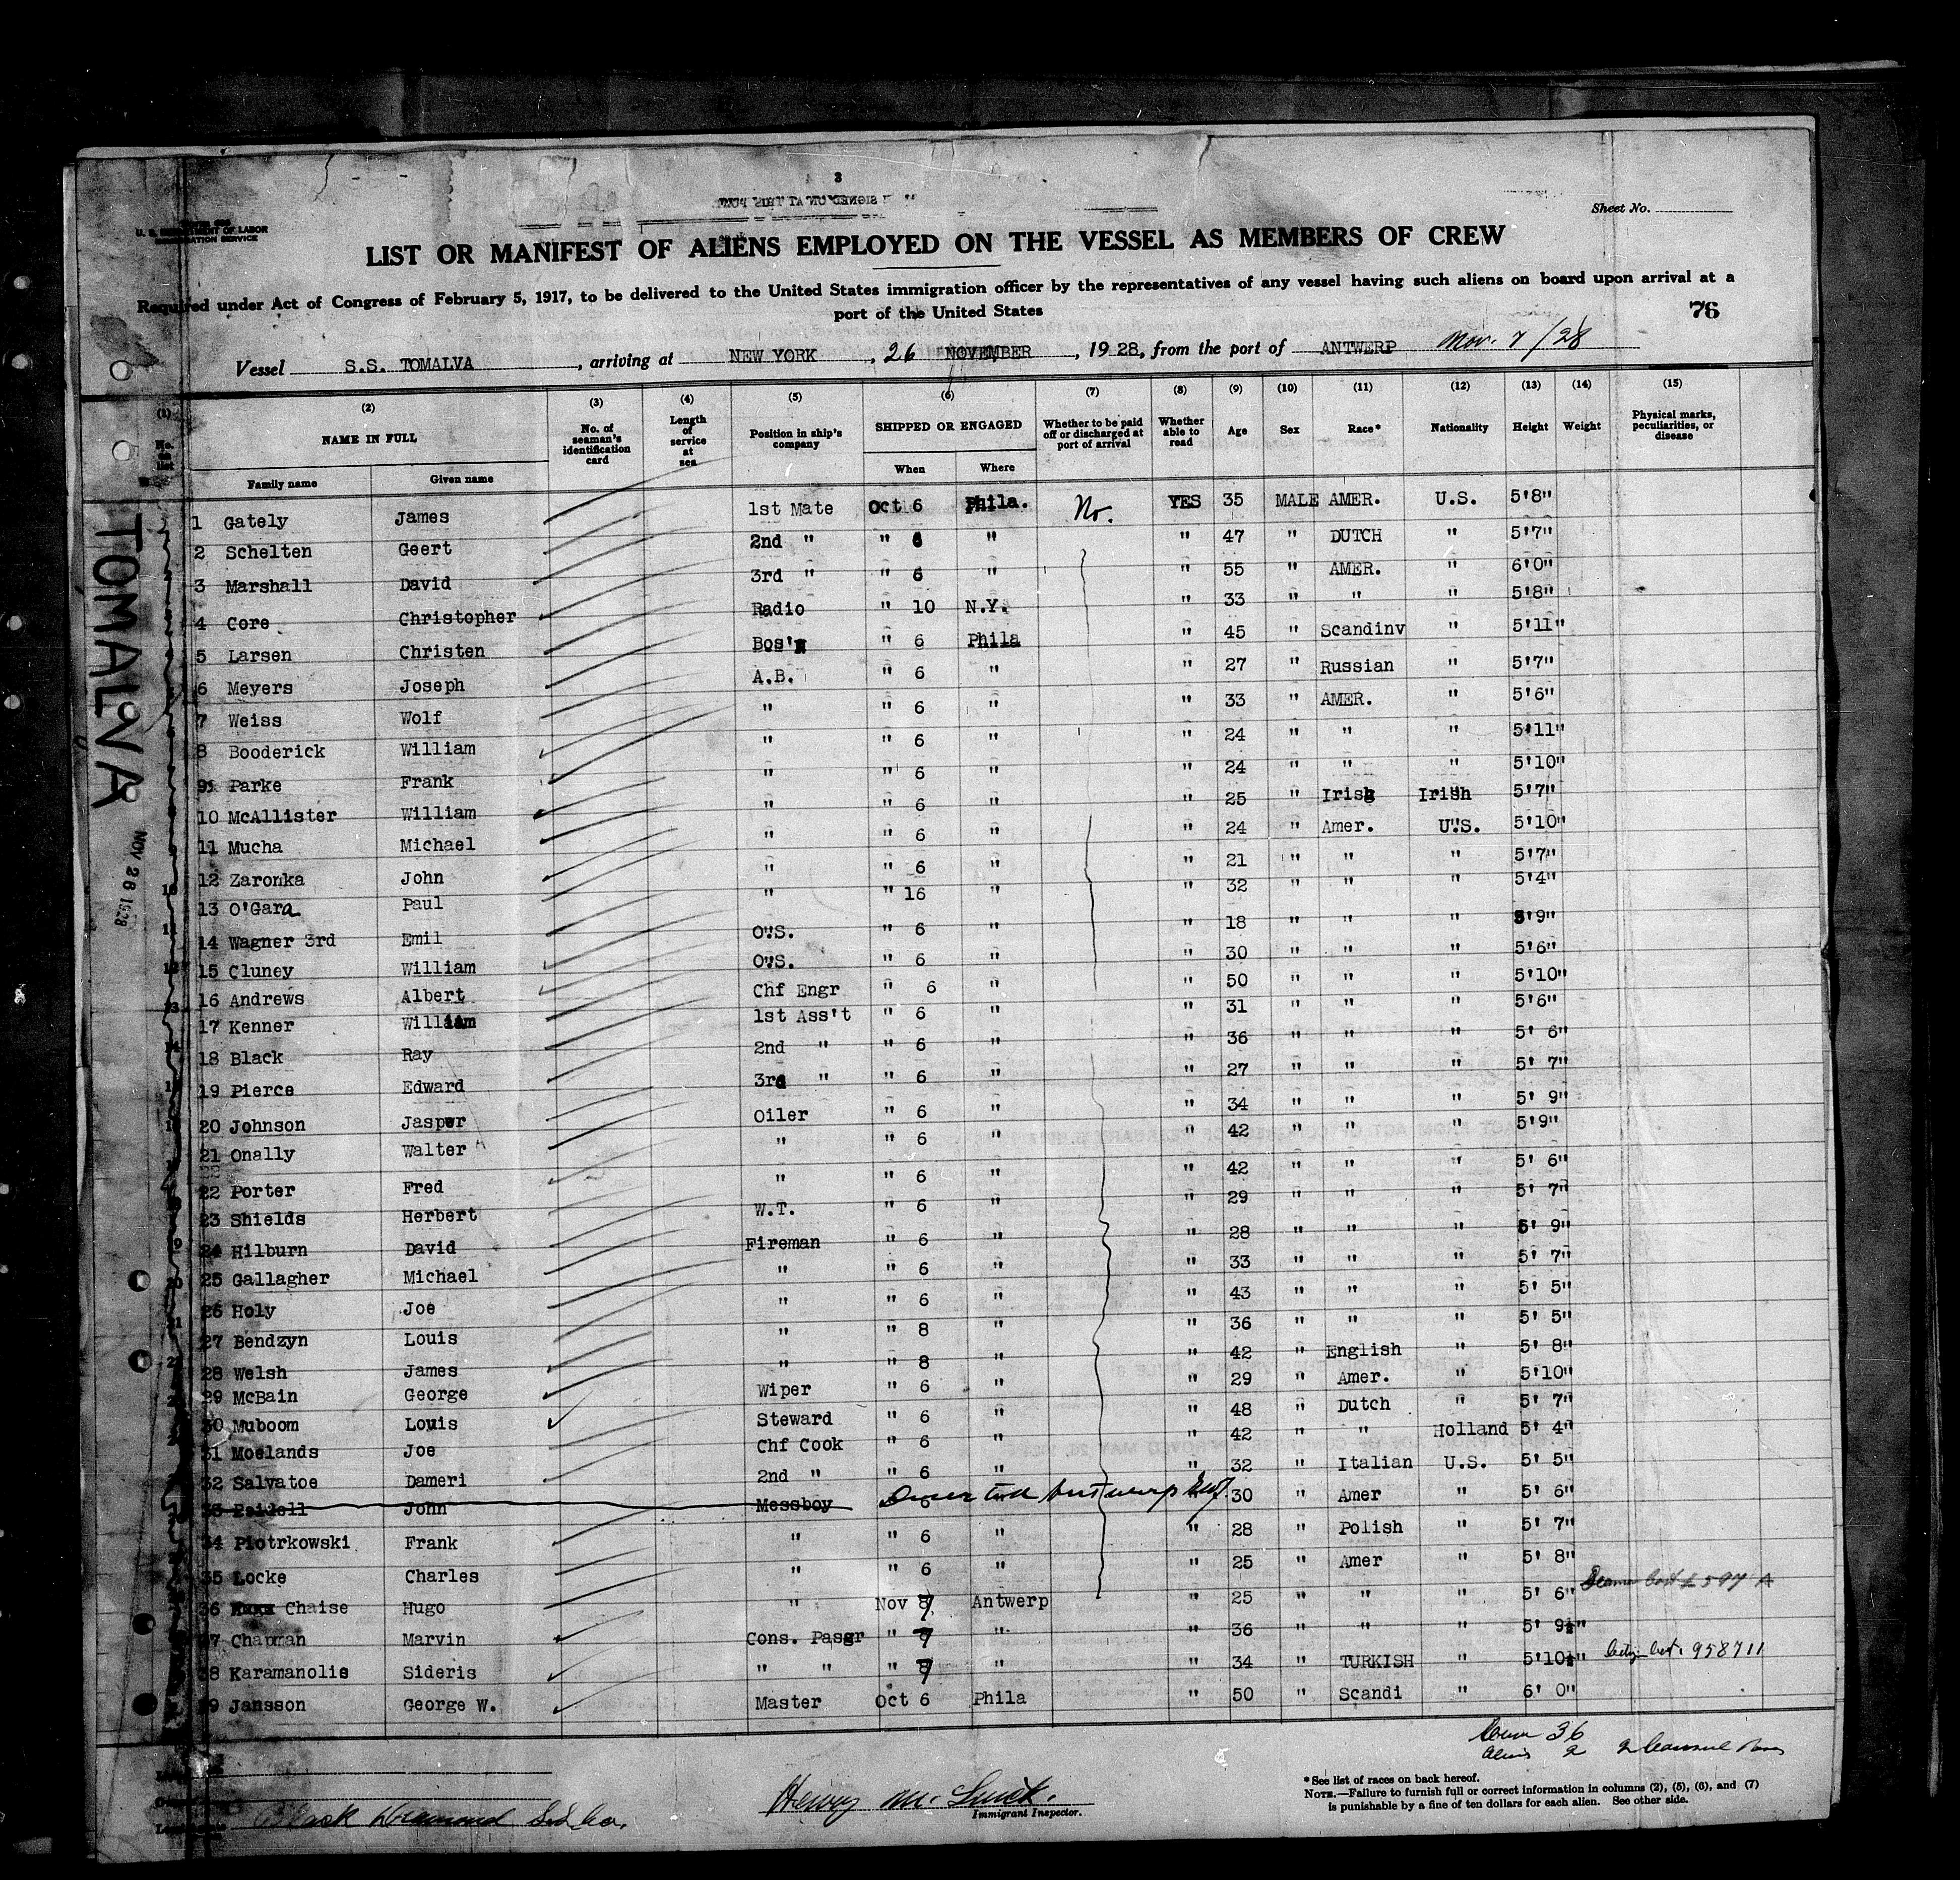 3
Sheet No.
U. S. DEPARTMENT OF LABOR
IMMIGRATION SERVICE
LIST OR MANIFEST OF ALIENS EMPLOYED ON THE VESSEL AS MEMBERS OF CREW
Required under Act of Congress of February 5, 1917, to be delivered to the United States immigration officer by the representatives of any vessel having such aliens on board upon arrival at a
port of the United States
76
Vessel S.S. TOMALVA, arriving at NEW YORK, 26 NOVEMBER, 1928, from the port of ANTWERP Nov. 7/28
(1) (2) (3) (4) (5) (6) (7) (8) (9) (10) (11) (12) (13) (14) (15)
No. on list NAME IN FULL No. of seaman's identification card Length of service at sea Position in ship's company SHIPPED OR ENGAGED Whether to be paid off or discharged at port of arrival Whether able to read Age Sex Race* Nationality Height Weight Physical marks, peculiarities, or disease
Family name Given name When Where
1 Gately James 1st Mate Oct 6 Phila. No. YES 35 MALE AMER. U.S. 5'8"
2 Schelten Geert 2nd " " 6 " " 47 " DUTCH " 5'7"
3 Marshall David 3rd " " 6 " " 55 " AMER. " 6'0"
4 Core Christopher Radio " 10 N.Y. " 33 " " " 5'8"
5 Larsen Christen Bos'n " 6 Phila " 45 " Scandinv " 5'11"
6 Meyers Joseph A.B. " 6 " " 27 " Russian " 5'7"
7 Weiss Wolf " " 6 " " 33 " AMER. " 5'6"
8 Booderick William " " 6 " " 24 " " " 5'11"
9 Parke Frank " " 6 " " 24 " " " 5'10"
10 McAllister William " " 6 " " 25 " Irish Irish 5'7"
11 Mucha Michael " " 6 " " 24 " Amer. U.S. 5'10"
12 Zaronka John " " 6 " " 21 " " " 5'7"
13 O'Gara Paul " " 16 " " 32 " " " 5'4"
14 Wagner 3rd Emil O.S. " 6 " " 18 " " " 5'9"
15 Cluney William O.S. " 6 " " 30 " " " 5'6"
16 Andrews Albert Chf Engr " 6 " " 50 " " " 5'10"
17 Kenner William 1st Ass't " 6 " " 31 " " " 5'6"
18 Black Ray 2nd " " 6 " " 36 " " " 5' 6"
19 Pierce Edward 3rd " " 6 " " 27 " " " 5' 7"
20 Johnson Jasper Oiler " 6 " " 34 " " " 5' 9"
21 Onally Walter " " 6 " " 42 " " " 5'9"
22 Porter Fred " " 6 " " 42 " " " 5' 6"
23 Shields Herbert W.T. " 6 " " 29 " " " 5' 7"
24 Hilburn David Fireman " 6 " " 28 " " " 5' 9"
25 Gallagher Michael " " 6 " " 33 " " " 5' 7"
26 Holy Joe " " 6 " " 43 " " " 5' 5"
27 Bendzyn Louis " " 8 " " 36 " " " 5' 5"
28 Welsh James " " 8 " " 42 " English " 5' 8"
29 McBain George Wiper " 6 " " 29 " Amer. " 5'10"
30 Muboom Louis Steward " 6 " " 48 " Dutch " 5' 7"
31 Moelands Joe Chf Cook " 6 " " 42 " " Holland 5' 4"
32 Salvatoe Dameri 2nd " " 6 " " 32 " Italian U.S. 5' 5"
33 John Messboy 6 Deserted Antwerp 30 " Amer " 5' 6"
34 Piotrkowski Frank " " 6 " " 28 " Polish " 5' 7"
35 Locke Charles " " 6 " " 25 " Amer " 5' 8"
36 Chaise Hugo " Nov 7 Antwerp " 25 " " " 5' 6"
37 Chapman Marvin Cons. Pasgr " 7 " " 36 " " " 5' 9½"
38 Karamanolis Sideris " " " 7 " " 34 " TURKISH " 5'10½" 958711
39 Jansson George W. Master Oct 6 Phila " 50 " Scandi " 6' 0"
TOMALVA
NOV 26 1928
Crew 36
Aliens 2
Black Diamond
Henry M.
Immigrant Inspector.
*See list of races on back hereof.
NOTE.—Failure to furnish full or correct information in columns (2), (5), (6), and (7)
is punishable by a fine of ten dollars for each alien. See other side.